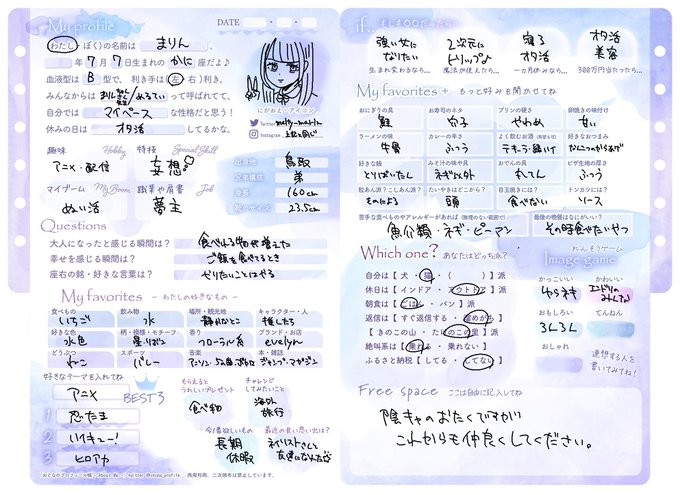 My profile
DATE
わたし・ぼく)の名前は まりん。
年 7 月 7 日生まれの かに 座だよ♪
血液型は B 型で、利き手は(左・右)利き。
って呼ばれてて、
自分では マイペース な性格だと思う!
休みの日は オタ活 してるかな。
にがおえ・アイコン
Twitter
Instagram 上記と同じ
趣味 Hobby
アニメ・配信
特技 Special Skill
妄想
マイブーム My Boom
ぬい活
職業や肩書 Job
夢主
出身地 鳥取
兄弟構成 弟
身長 160cm
靴のサイズ 23.5cm
Questions
大人になったと感じる瞬間は? 食べれる物が増えた
幸せを感じる瞬間は? ご飯を食べてるとき
座右の銘・好きな言葉は? やりたいことはやる
My favorites – わたしの好きなもの –
食べもの いちご
飲み物 水
場所・観光地 静かなとこ
キャラクター・人 推したち
好きな色 水色
柄・模様・モチーフ 星・リボン
香り フローラル系
ブランド・お店 evelyn
どうぶつ ねこ
スポーツ バレー
音楽 アニソン・ボカロ
本・雑誌 ジャンプ・マガジン
好きなテーマを入れてね
アニメ BEST3
1 忍たま
2 ハイキュー!
3 ヒロアカ
もらえるとうれしいプレゼント
食べ物
チャレンジしてみたいこと
海外旅行
今1番欲しいもの
長期休暇
最近の良い思い出は?
ネイリストさんと友達になれた
おとなのプロフィール帳 - About Me -
if... もしも○○だったら…
強い女になりたい
生まれ変わるなら…
2次元にトリップ♪
魔法が使えたら…
寝る オタ活
一カ月休みなら…
オタ活 美容
300万円当たったら…
My favorites + もっと好みを聞かせてね
おにぎりの具 鮭
お寿司のネタ 穴子
プリンの硬さ やわめ
卵焼きの味付け 甘い
ラーメンの味 牛骨
カレーの辛さ ふつう
よく飲むお酒
好きなおつまみ
好きな鍋
みそ汁の味や具 ネギ以外
おでんの具
ピザ生地の厚さ ふつう
粒あん派?こしあん派? ものによる
たいやきはどこから? 頭
目玉焼きには? 食べない
トンカツには? ソース
苦手な食べものやアレルギーがあれば(無理のない範囲で)
魚介類・ネギ・ピーマン
最後の晩餐はなにがいい?
その時食べたいやつ
Which one? あなたはどっち派?
自分は【 犬 ・ 猫 ・ ( ) 】派
休日は【 インドア ・ アウトドア 】派
朝食は【 ごはん ・ パン 】派
返信は【 すぐ返信する ・ 溜めがち 】
【 きのこの山 ・ たけのこの里 】派
絶叫系は【 乗れる ・ 乗れない 】
ふるさと納税【 してる ・ してない 】
れんそうゲーム
Image game
かっこいい
かわいい
おもしろい
てんねん
おしゃれ
連想する人を書いてみてね!
Free space ここは自由に記入してね
陰キャのおたくですが
これからも仲良くしてください。